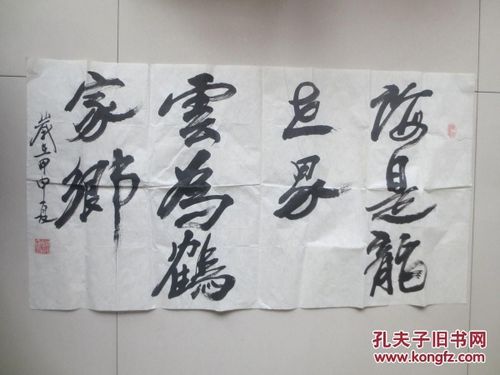 海是龍
世界
雲為鶴
家鄉
歲在甲申夏
孔夫子旧书网
www.kongfz.com